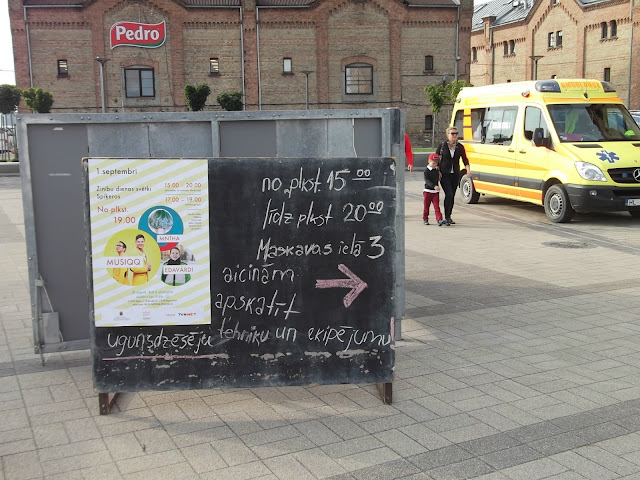 Pedro
1.septembrī
Zinību dienas svētki
Spīķeros
No plkst.
19.00
15:00 - 20:00
17:00 - 19:00
MNTHA
MUSIQQ
EDAVĀRDI
no plkst. 15 00
līdz plkst 20 00
Maskavas ielā 3
aicinām
apskatīt
ugunsdzēsēju tehniku un ekipējumu